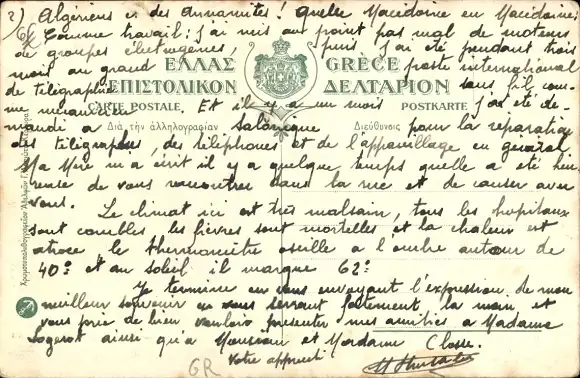 2) Algériens et des Annamites! Quelle Macédoine en Macédoine,
Comme travail: j'ai mis au point pas mal de moteurs
de groupes électrogènes, puis j'ai été pendant trois
mois au grand poste international
de télégraphie sans fil com-
me mécanicien
ΕΛΛΑΣ GRÈCE
ΕΠΙΣΤΟΛΙΚΟΝ ΔΕΛΤΑΡΙΟΝ
CARTE POSTALE POSTKARTE
Et il y a un mois j'ai été de-
mandé à Salonique pour la réparation
Διὰ τὴν ἀλληλογραφίαν Διεύθυνσις
des télégraphes, des téléphones et de l'appareillage en général
Ma Mère m'a écrit il y a quelque temps quelle a été heu-
reuse de vous rencontrer dans la rue et de causer avec
vous. Le climat ici est très malsain, tous les hopitaux
sont combles les fièvres sont mortelles et la chaleur est
atroce le thermomètre oscille à l'ombre autour de
40° et au soleil il marque 62°
Je termine en vous envoyant l'expression de mon
meilleur souvenir en vous serrant fortement la main et
vous prie de bien vouloir présenter mes amitiés à Madame
ainsi qu'à Monsieur et Madame Closse.
Votre apprenti
GR